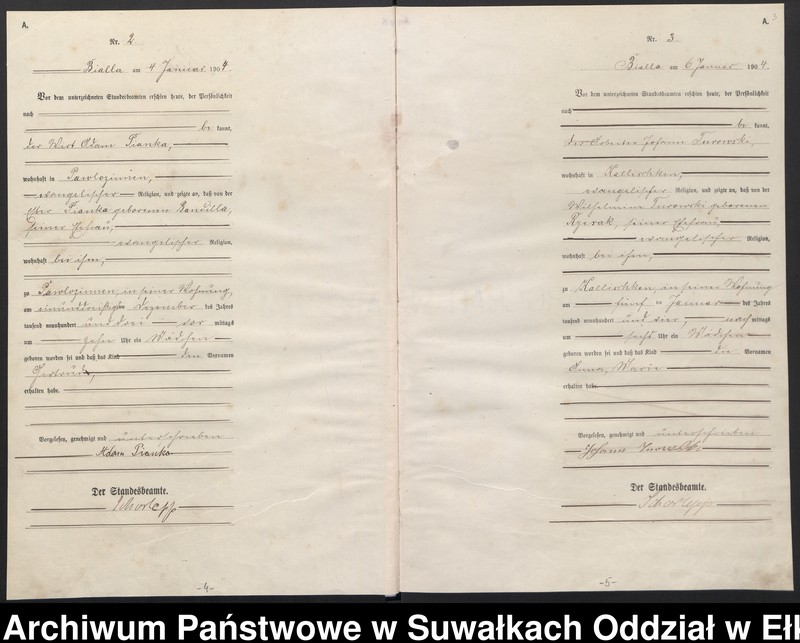 A.
Nr. 2
Bialla am 4 Januar 1904
Vor dem unterzeichneten Standesbeamten erschien heute, der Persönlichkeit
nach
be kannt,
der Wirt Adam Pianka,
wohnhaft in
evangelischer Religion, und zeigte an, daß von der
Pianka geborenen
seiner Ehefrau,
evangelischer Religion,
wohnhaft bei ihm,
zu in seiner Wohnung,
am einunddreißigsten Dezember des Jahres
tausend neunhundert und drei vor mittags
um zehn Uhr ein Mädchen
geboren worden sei und daß das Kind den Vornamen
Gertrud,
erhalten habe.
Vorgelesen, genehmigt und unterschrieben
Adam Pianka
Der Standesbeamte.
Schorlepp
-4-
A. 3
Nr. 3
Bialla am 6 Januar 1904.
Vor dem unterzeichneten Standesbeamten erschien heute, der Persönlichkeit
nach
be kannt,
der Arbeiter Johann Turowski,
wohnhaft in Kallischken,
evangelischer Religion, und zeigte an, daß von der
Wilhelmine Turowski geborenen
seiner Ehefrau,
evangelischer Religion,
wohnhaft bei ihm,
zu Kallischken, in seiner Wohnung
am fünf ten Januar des Jahres
tausend neunhundert und vier, nach mittags
um sechs Uhr ein Mädchen
geboren worden sei und daß das Kind die Vornamen
Anna, Marie
erhalten habe.
Vorgelesen, genehmigt und unterschrieben
Johann Turowski.
Der Standesbeamte.
Schorlepp
-5-
Archiwum Państwowe w Suwałkach Oddział w Eł